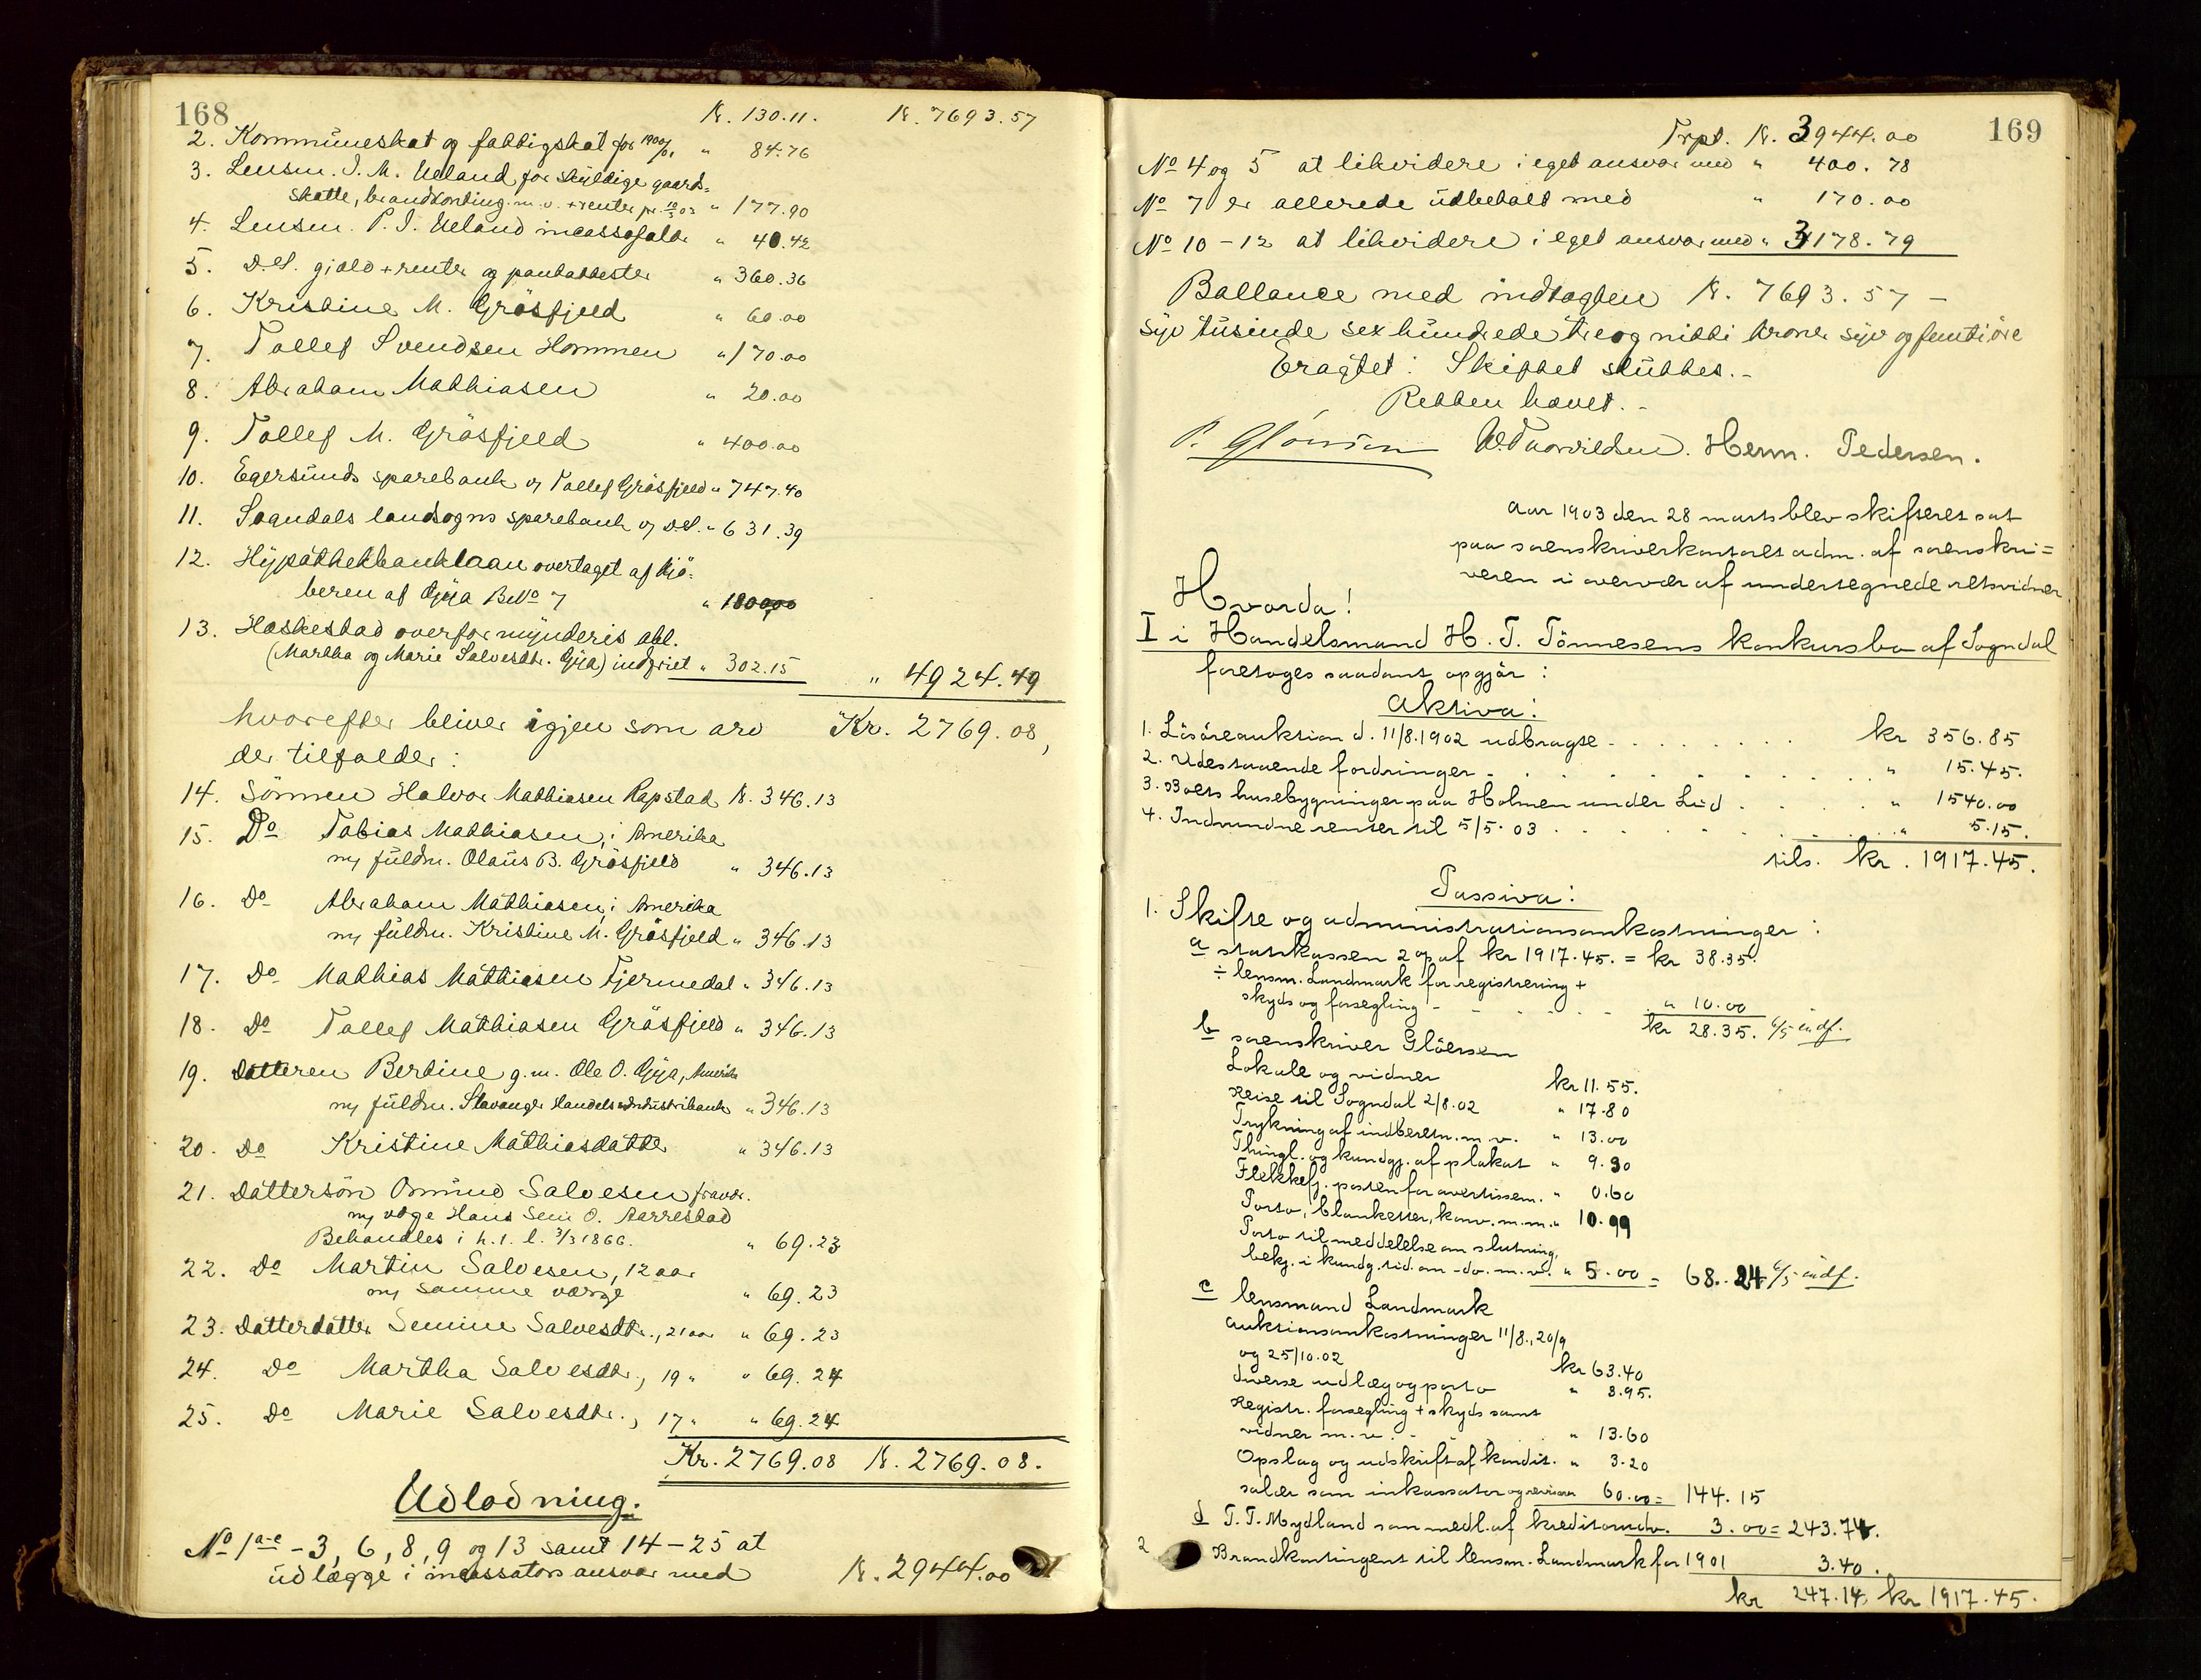 168
Kr. 130.11. Kr. 7693.57
2. Kommuneskat og fattigskat for 1900/01 " 84.76
3. Lensm. J. M. Ueland for skyldige gaards=
skatte, brandkonting. m. v. + renter pr. 12/2 03 " 177.90
4. Lensm. P. J. Ueland incassogjæld " 40.42
5. D.S. gjæld + renter og panteattester " 360.36
6. Kristine M. Gräsfjeld " 60.00
7. Tollef Svendsen Hommen " 170.00
8. Abraham Mathiasen " 20.00
9. Tollef M. Gräsfjeld " 400.00
10. Egersunds sparebank v/ Tollef Gräsfjeld " 747.40
11. Sogndals landsogns sparebank v/ D.S. " 631.39
12. Hypothekbanklaan overtaget af kjö=
beren af Gyja B.No 7 " 1800.00
13. Heskestad overformynderis abl.
(Martha og Marie Salvesdtr. Gyja) indfriet " 302.15 " 4924.49
hvorefter bliver igjen som arv Kr. 2769.08,
der tilfalder:
14. Sönnen Halvor Mathiasen Rapstad Kr. 346.13
15. Do Tobias Mathiasen, i Amerika
v/ fuldm. Olaus B. Gräsfjeld " 346.13
16. Do Abraham Mathiasen, i Amerika
v/ fuldm. Kristine M. Gräsfjeld " 346.13
17. Do Mathias Mathiasen Fjermedal " 346.13
18. Do Tollef Mathiasen Gräsfjeld " 346.13
19. Datteren Bertine g. m. Ole O. Gyja, Amerika
v/ fuldm. Stavanger Handels & Industribank " 346.13
20. Do Kristine Mathiasdatter " 346.13
21. Dattersön Omund Salvesen fravær.
v/ værge Hans Sem O. Aarrestad
Behandles i h. t. l. 3/3 1866. " 69.23
22. Do Martin Salvesen, 12 aar
v/ samme værge " 69.23
23. Datterdatter Semine Salvesdtr., 21 aar " 69.23
24. Do Martha Salvesdtr., 19 " " 69.24
25. Do Marie Salvesdtr., 17 " " 69.24
Kr. 2769.08 Kr. 2769.08.
Udlodning.
No 1 a-e - 3, 6, 8, 9 og 13 samt 14 - 25 at
udlægge i incassators ansvar med Kr. 2944.00
169
Trpt. Kr. 3944.00
No 4 og 5 at likvidere i eget ansvar med " 400.78
No 7 er allerede udbetalt med " 170.00
No 10 - 12 at likvidere i eget ansvar med " 3178.79
Ballance med indtægten Kr. 7693.57 -
syv tusinde sex hundrede tre og nitti kroner syv og femti öre
Eragtet: Skiftet sluttes. -
Retten hævet. -
P. Glörsen Herm. Pedersen.
Aar 1903 den 28 marts blev skifteret sat
paa sorenskriverkontoret adm. af sorenskri=
veren i overvær af undertegnede retsvidner
Hvorda!
I i Handelsmand H. T. Tönnesens konkursbo af Sogndal
foretoges saadant opgjör:
Aktiva:
1. Lösöreauktion d. 11/8.1902 udbragte . . . . . . . . kr 356.85
2. Udestaaende fordringer . . . . . . . . . . " 15.45.
3. Boets husebygninger paa Holmen under Lid . . . . . " 1540.00
4. Indvundne renter til 5/5. 03 . . . . . . . . . " 5.15.
tils. kr. 1917.45.
Passiva:
1. Skifte og administrationsomkostninger:
a statskassen 2 % af kr 1917.45. = kr 38.35.
÷ lensm. Landmark for registrering +
skyds og forsegling - - - - - " 10.00
kr 28.35. 6/5 indf.
b sorenskriver Glöersen
Lokale og vidner kr 11.55.
Reise til Sogndal 2/8.02 " 17.80
Trykning af indberetn. m. v. " 13.00
Thingl. og kundgj. af plakat " 9.30
Flekkefj. posten for avertissem. " 0.60
Porto, blanketter, konv. m. m. " 10.99
Porto til meddelelse om slutning,
bekj. i kundg. tid. om - do. m. v. " 5.00 = 68.24 6/5 indf.
c lensmand Landmark
auktionsomkostninger 11/8., 20/9
og 25/10.02 kr 63.40
diverse udlæg og porto " 3.95.
Registr. forsegling + skyds samt
vidner m. v. - " 13.60
Opslag og udskrift af kondit. " 3.20
salær som inkassator og revisor 60.00 = 144.15
d T. T. Mydland som medl. af kreditorudv. 3.00 = 243.74.
2 Brandkontingent til lensm. Landmark for 1901 3.40.
kr 247.14, kr 1917.45.